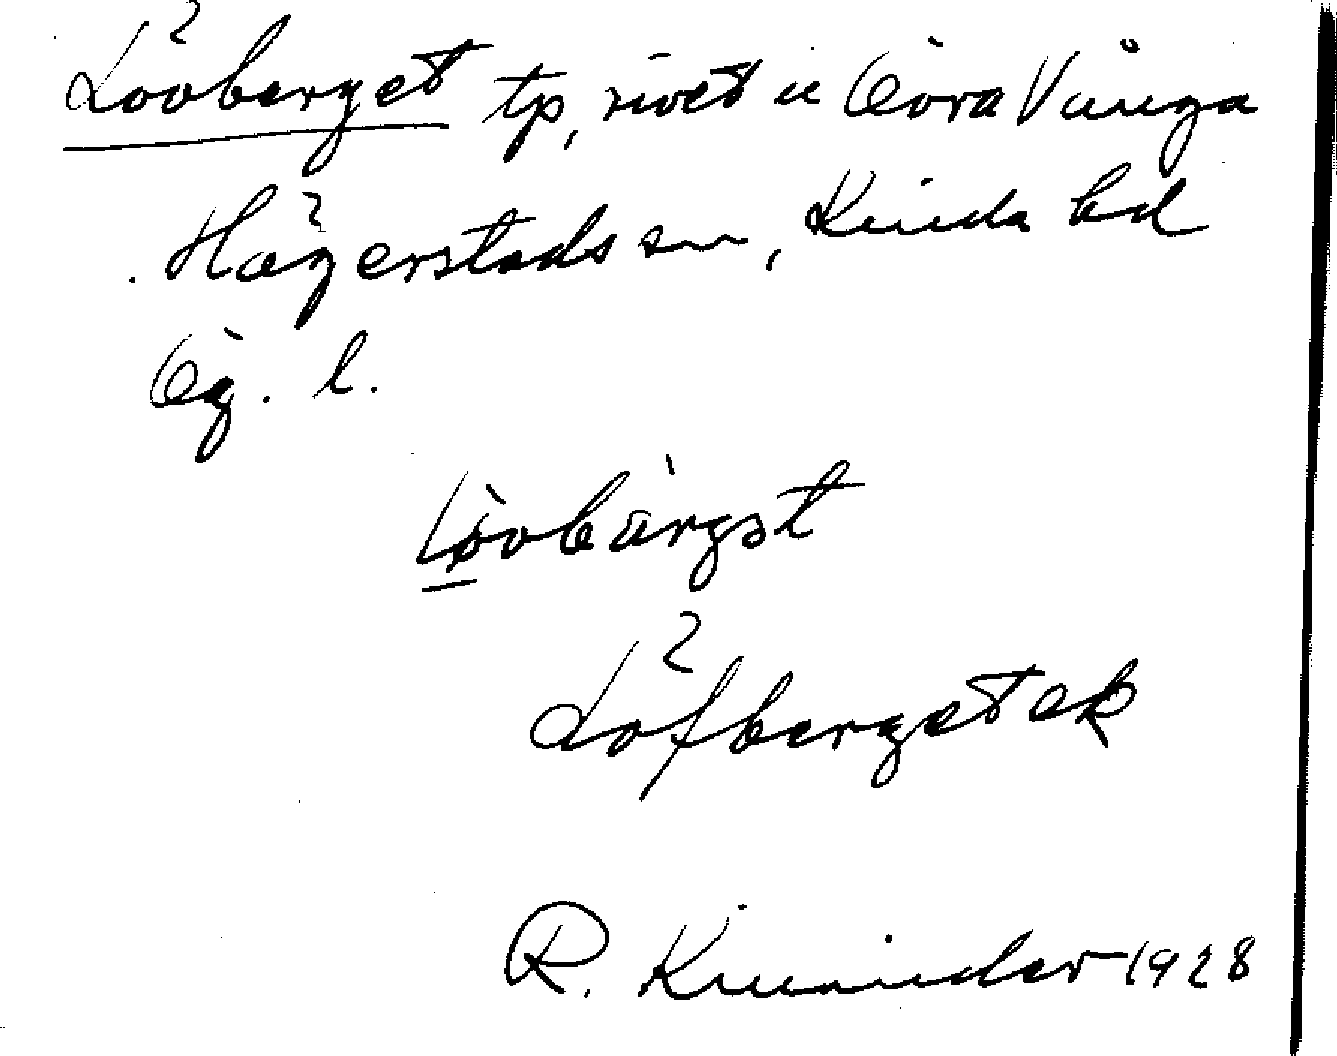 Lövberget tp, rivet u Övra Vånga
Hägerstads sn, Kinda hd
Ög. l.
Lövbärgət
Löfberget ek
R. Kinnander 1928